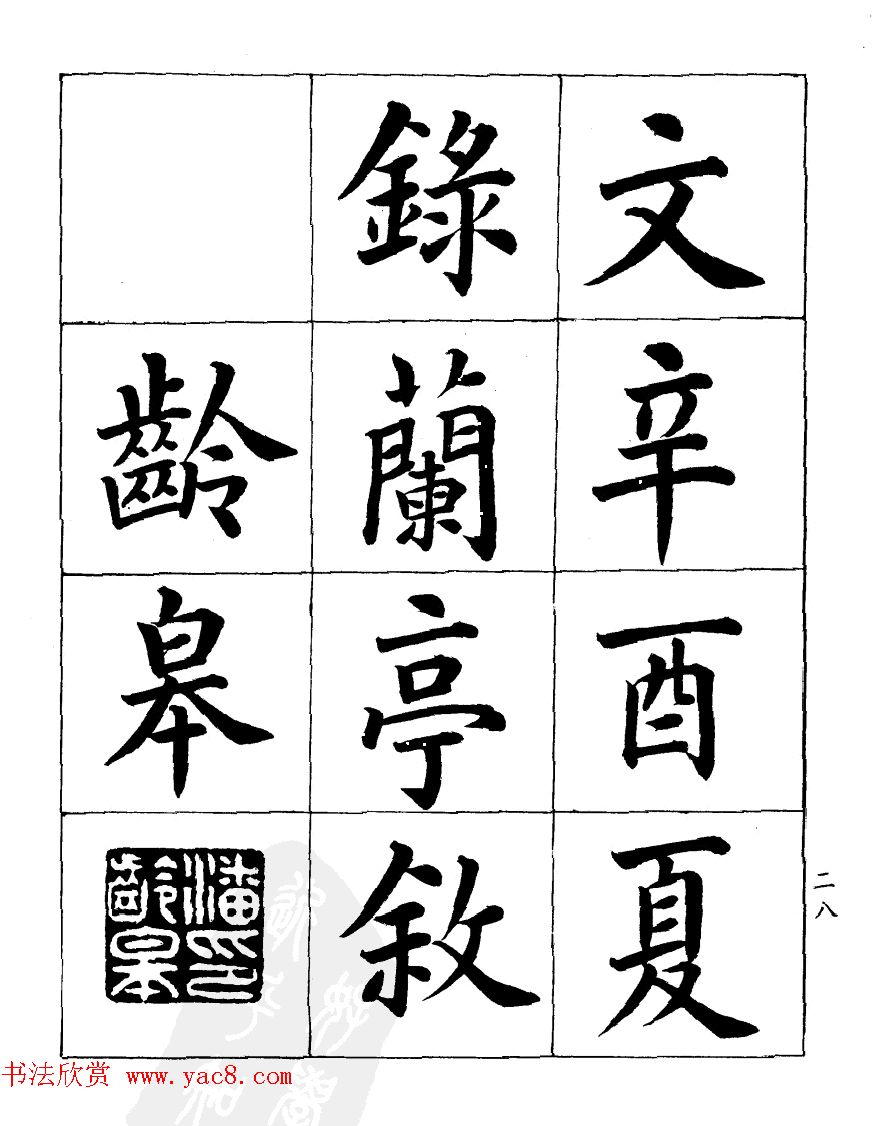 文辛酉夏
錄蘭亭敘
齡皋
潘印齡皋
二八
书法欣赏 www.yac8.com